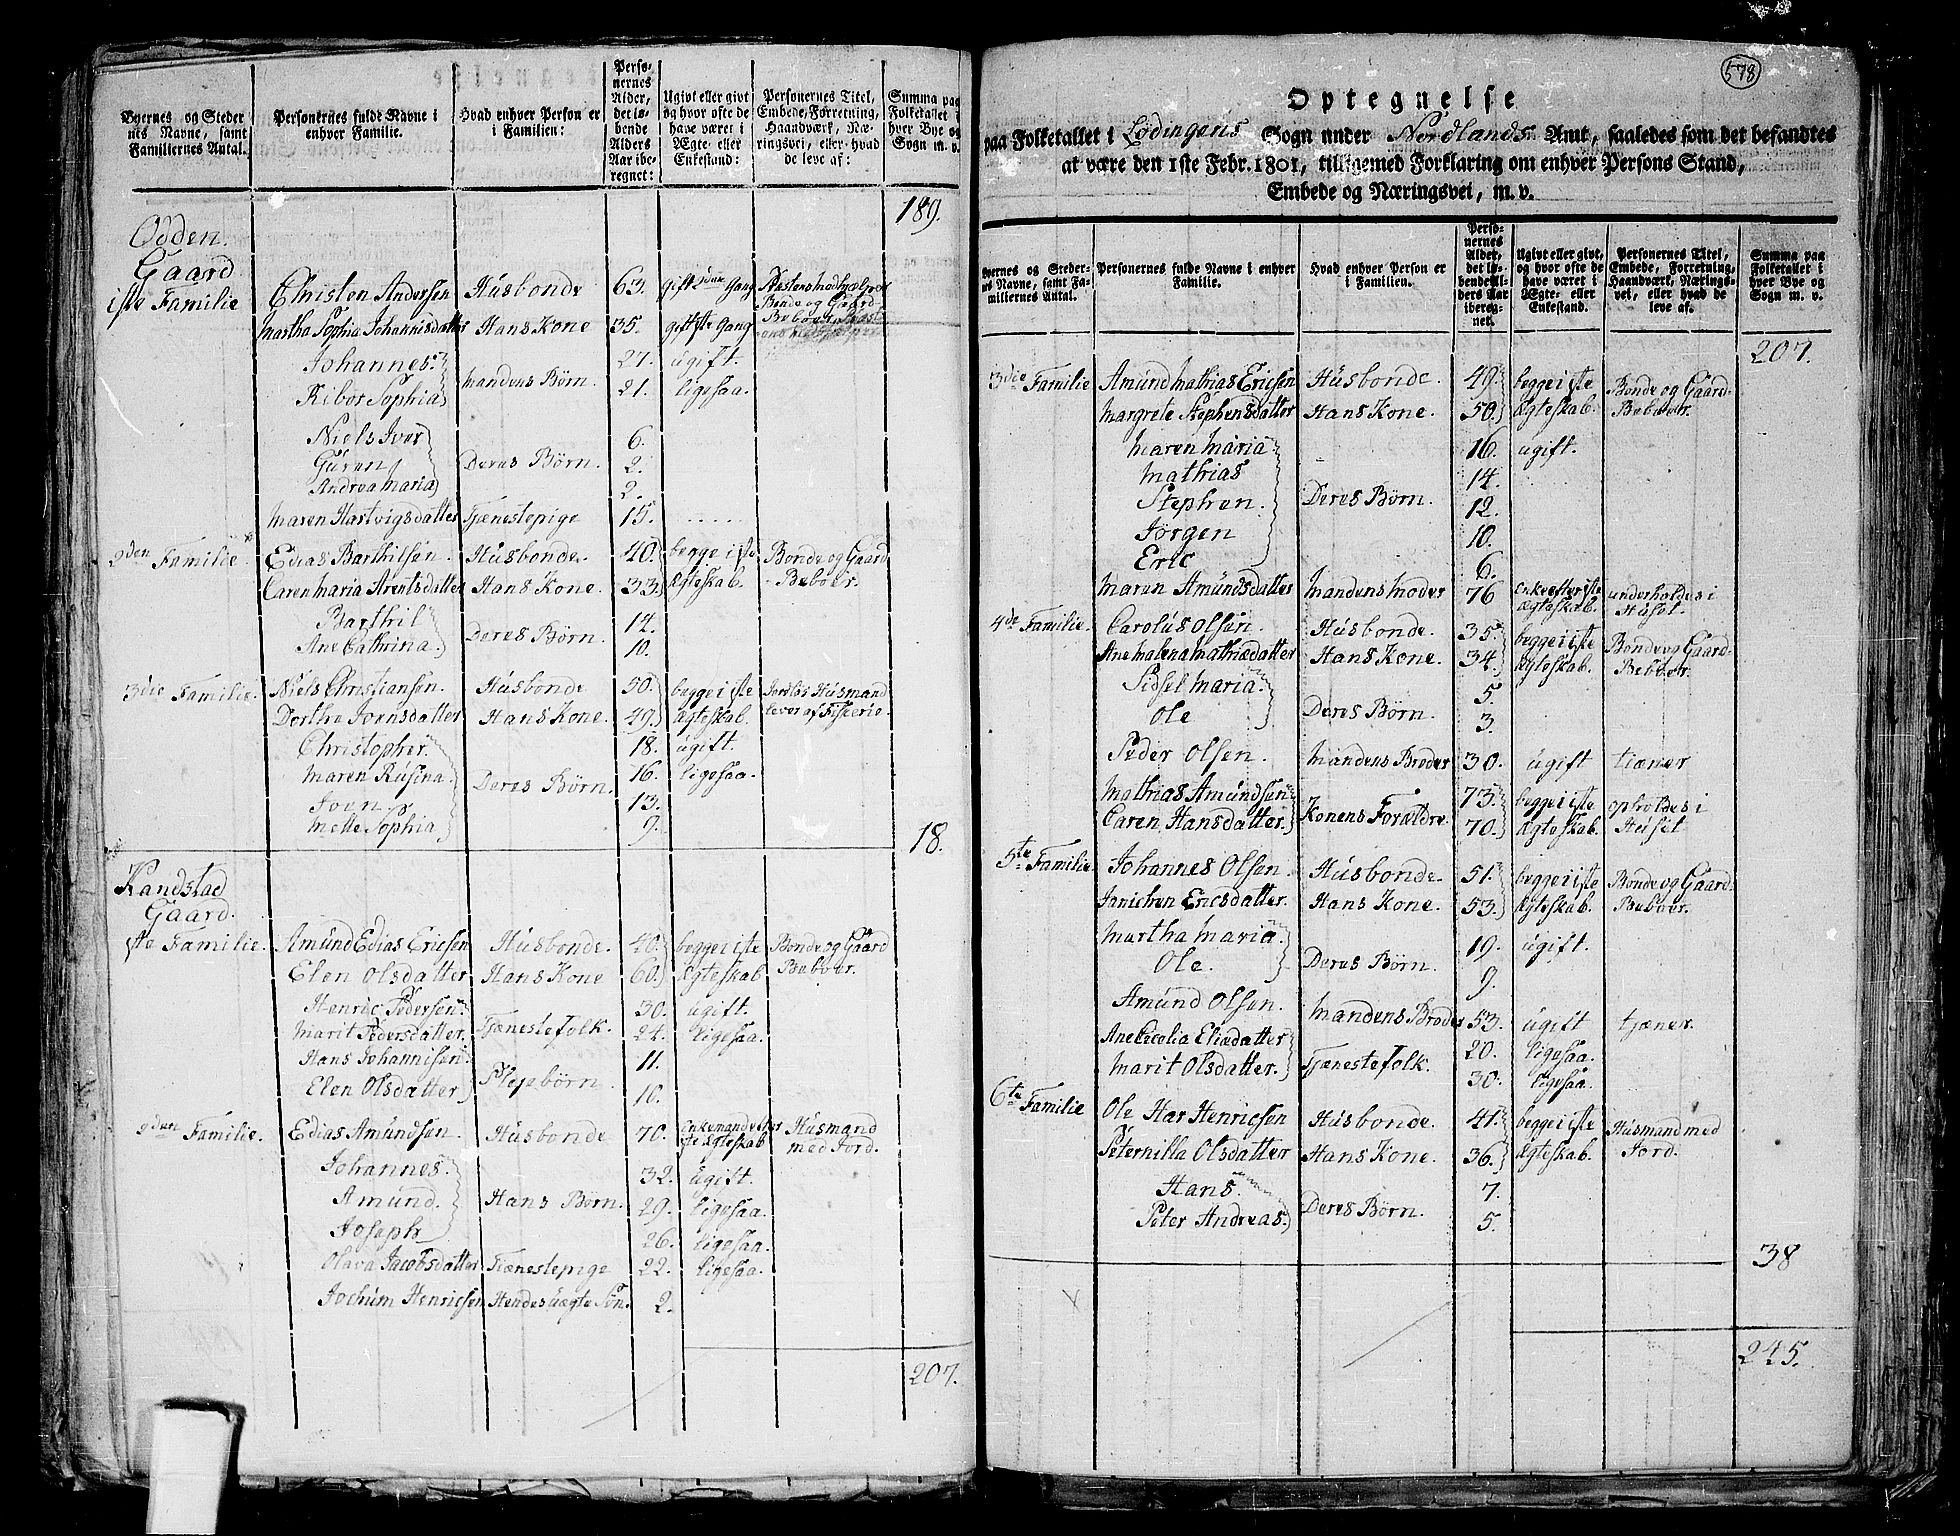 Byernes og Steder
nes Navne, samt
Familiernes Antal.
Personernes fulde Navne i
enhver Familie.
Hvad enhver Person er
i Familien:
Perso-
nernes
Alder,
det lø-
bende
Alders
Aar ibe-
regnet:
Ugivt eller givt
og hvor ofte de
have været i
Ægte- eller
Enkestand:
Personernes Titel,
Embede, Forretning,
Haandværk, Næ-
ringsvei, eller hvad
de leve af:
Summa paa
Folketallet i
hver Bye og
Sogn m. v.
189.
Odden
Gaard
1ste Familie Christen Andersen Husbonde 63. gift 2den Gang
Bonde og Gaard
Beboer
Martha Sophia Johannisdatter Hans Kone 35. gift 1ste Gang
Johannes 27. ugift.
Mandens Børn.
Ribor Sophia 21. ligesaa.
Niels Iver 6.
Guren Deres Børn. 2.
Andrea Maria 2.
Maren Hartvigsdatter Tjænestepige 15. . . . . .
2den Familie Edias Barthilsen Husbonde. 40. begge i 1ste Bonde og Gaard
Caren Maria Arentsdatter Hans Kone. 33. Ægteskab. Beboer.
Barthil 14.
Deres Børn.
Ane Cathrina 10.
3die Familie. Niels Christiansen. Husbonde 50. begge i 1ste Jordløs Husmand
Dorthe Jornsdatter Hans Kone. 49. Ægteskab. lever af Fiskerie.
Christopher 18. ugift.
Maren Rusina Deres Børn. 16. ligesaa.
Joen 13.
Mette Sophia 9.
18.
Kandstad
Gaard.
1ste Familie. Amund Edias Ericsen Husbonde. 40. begge i 1ste Bonde og Gaard
Elen Olsdatter Hans Kone 60. Ægteskab Beboer.
Henric Pedersen 30. ugift.
Marit Pedersdatter. Tjænestefolk. 24. ligesaa.
Hans Johannisen 11.
Plejebørn.
Elen Olsdatter 10.
2den Familie. Edias Amundsen. Husbonde 70. Enkemand efter Husmand
1ste Ægteskab med Jord.
Johannes 32. ugift.
Amund. Hans Børn. 29. ligesaa.
Joseph 26. ligesaa.
Olava Jacobsdatter Tjænestepige 22. ligesaa.
Jochum Henricsen Hendes uægte Søn. 2.
207.
578
Optegnelse
paa Folketallet i Lødingens Sogn under Nordlands Amt, saaledes som det befandtes
at være den 1ste Febr. 1801, tilligemed Forklaring om enhver Persons Stand,
Embede og Næringsvei, m. v.
Byernes og Steder-
nes Navne, samt Fa-
miliernes Antal.
Personernes fulde Navne i enhver
Familie.
Hvad enhver Person er
i Familien.
Perso-
nernes
Alder,
det lø-
bende Al-
ders Aar
iberegnet.
Ugivt eller givt,
og hvor ofte de
have været i
Ægte- eller
Enkestand.
Personernes Titel,
Embede, Forretning,
Haandværk, Nærings-
vei, eller hvad de
leve af.
Summa paa
Folketallet i
hver Bye og
Sogn m. v.
207.
3die Familie Amund Mathias Ericsen Husbonde. 49. begge i 1ste Bonde og Gaard
Margrete Stephensdatter Hans Kone. 50. Ægteskab. Beboer.
Maren Maria 16. ugift.
Mathias 14.
Stephen Deres Børn. 12.
Jørgen 10.
Eric 6.
Maren Amundsdatter Mandens Moder 76 Enke efter 1ste underholdes i
Ægteskab. Huset.
4de Familie. Carolus Olsen. Husbonde. 35. begge i 1ste Bonde og Gaard
Ane Malena Mathiædatter Hans Kone. 34. Ægteskab. Beboer.
Sidsel Maria 5.
Deres Børn.
Ole 3.
Peder Olsen Mandens Broder 30. ugift tiæner
Mathias Amundsen 73. begge i 1ste opholdes i
Konens Forældre.
Caren Hansdatter. 70. Ægteskab. Huset
5te Familie. Johannes Olsen Husbonde. 51. begge i 1ste Bonde og Gaard
Janichen Ericsdatter. Hans Kone. 53. Ægteskab. Beboer.
Martha Maria. 19. ugift.
Deres Børn.
Ole. 9.
Amund Olsen. Mandens Broder 53. ugift tjæner.
Ane Cicelia Eliædatter 20. ligesaa.
Tjænestefolk.
Marit Olsdatter. 30. ligesaa.
6te Familie Ole Har Henricsen Husbonde. 41. begge i 1ste Husmand med
Peternilla Olsdatter Hans Kone. 36. Ægteskab. Jord.
Hans. 7.
Deres Børn.
Peter Andreas. 5.
38
245.